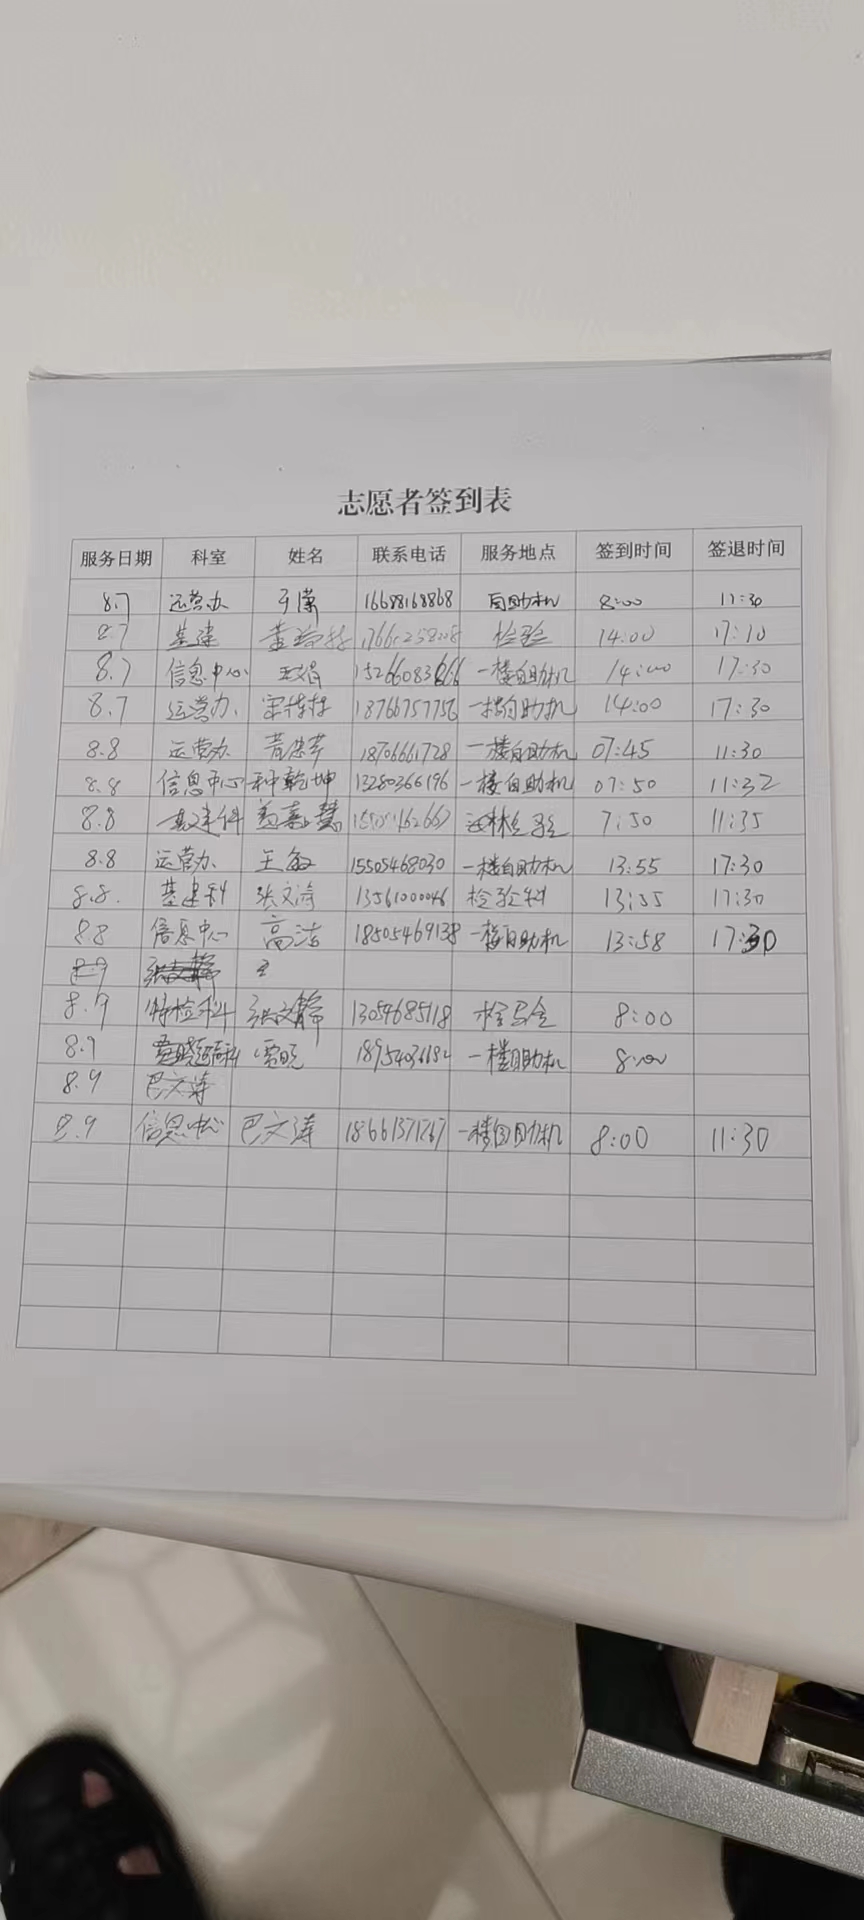 志愿者签到表
服务日期 科室 姓名 联系电话 服务地点 签到时间 签退时间
8.7 运营办 16688168868 自助机 8:00 11:30
8.7 基建 检验 14:00 17:10
8.7 信息中心 一楼自助机 14:00 17:30
8.7 运营办 18766757756 一楼自助机 14:00 17:30
8.8 运营办 18706661728 一楼自助机 07:45 11:30
8.8 信息中心 种乾坤 13280366196 一楼自助机 07:50 11:32
8.8 基建科 检验 7:50 11:35
8.8 运营办 王敏 15505468030 一楼自助机 13:55 17:30
8.8. 基建科 张文涛 13561000046 检验科 13:55 17:30
8.8 信息中心 高洁 18505469138 一楼自助机 13:58 17:30
8.9
8.9 特检科 张文静 13054685118 检验 8:00
8.9 一楼自助机 8:00
8.9 巴文涛
8.9 信息中心 巴文涛 18661371767 一楼自助机 8:00 11:30